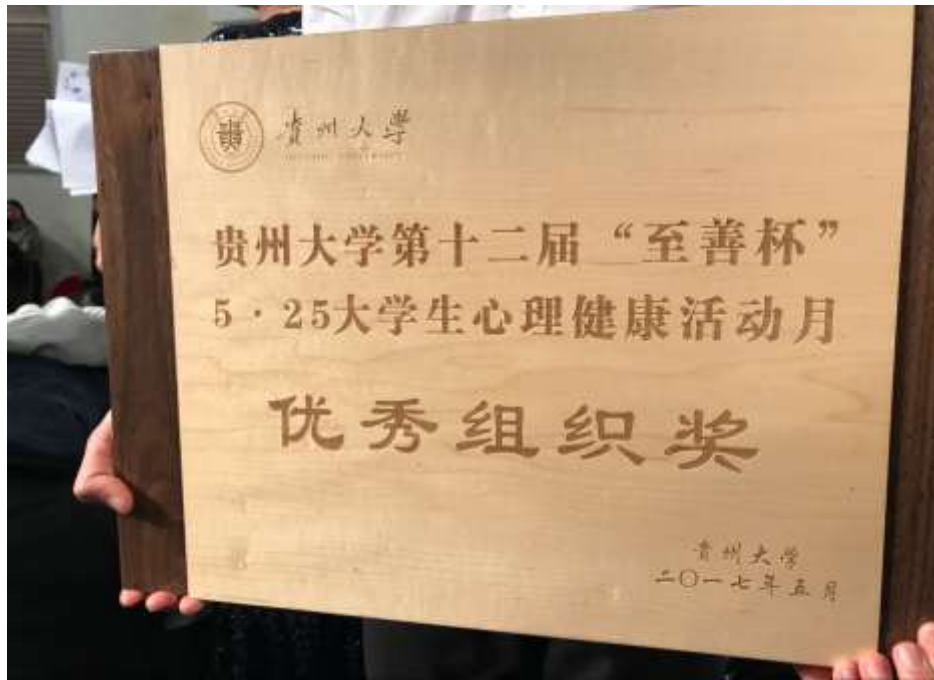 貴州大學
贵州大学第十二届“至善杯”
5·25大学生心理健康活动月
优秀组织奖
貴州大学
二〇一七年五月